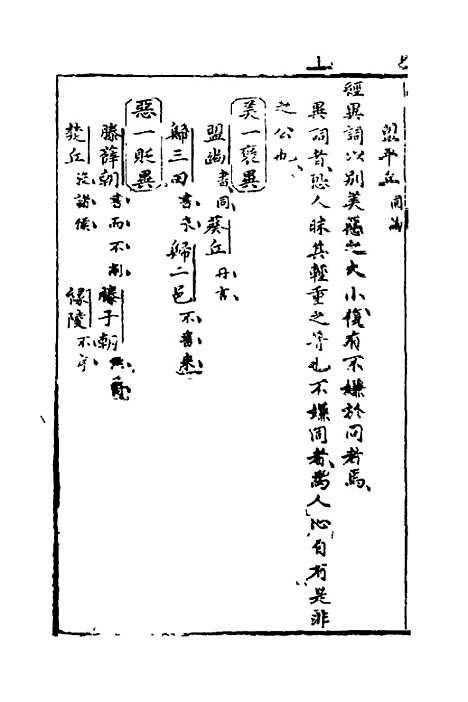 盟平丘同
經異詞以別美惡之大小復有不嫌於同者焉
異詞者恐人昧其輕重之等也不嫌同者為人心自有是非
之公也
美一褒異
盟幽書同葵丘再言
歸三田書來歸二邑不書來
惡一貶異
滕薛朝書而不削滕子朝
楚丘沒諸侯緣陵不序